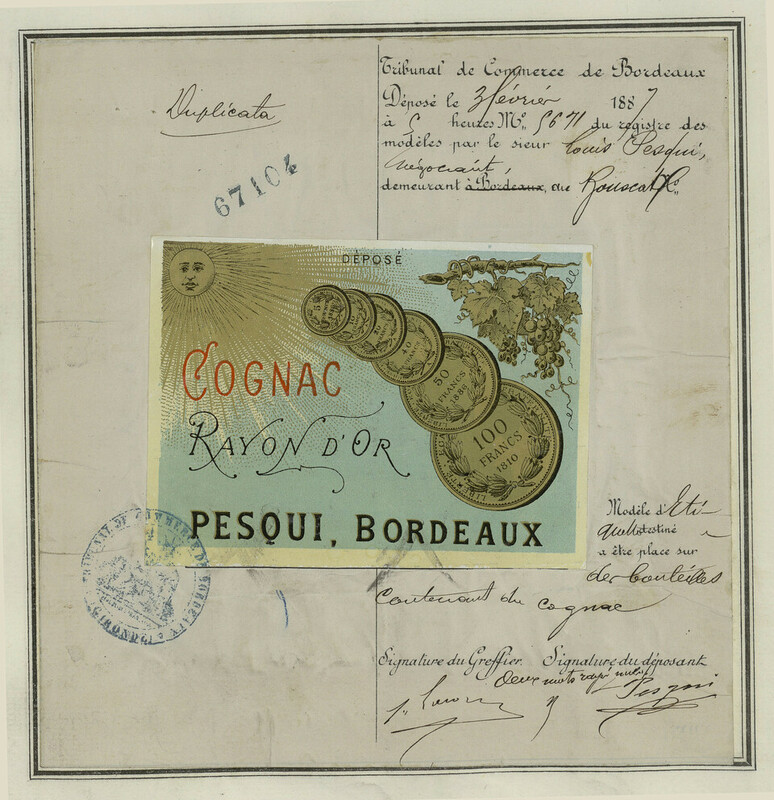 Duplicata
67104
Tribunal de Commerce de Bordeaux
Déposé le 3 février 1887
à 5 heures N° 5671 du registre des
modèles par le sieur Louis Pesqui,
négociant,
demeurant à Bordeaux, au Bouscat
DÉPOSÉ
5
40
50
FRANCS
100
FRANCS
1810
COGNAC
RAYON D'OR
PESQUI, BORDEAUX
TRIBUNAL DE COMMERCE DE BORDEAUX
GIRONDE
Modèle d'Eti-
quette destiné
a être placé sur
des bouteilles
Contenant du cognac
Signature du Greffier. Signature du déposant
deux mots rayés nuls
Pesqui